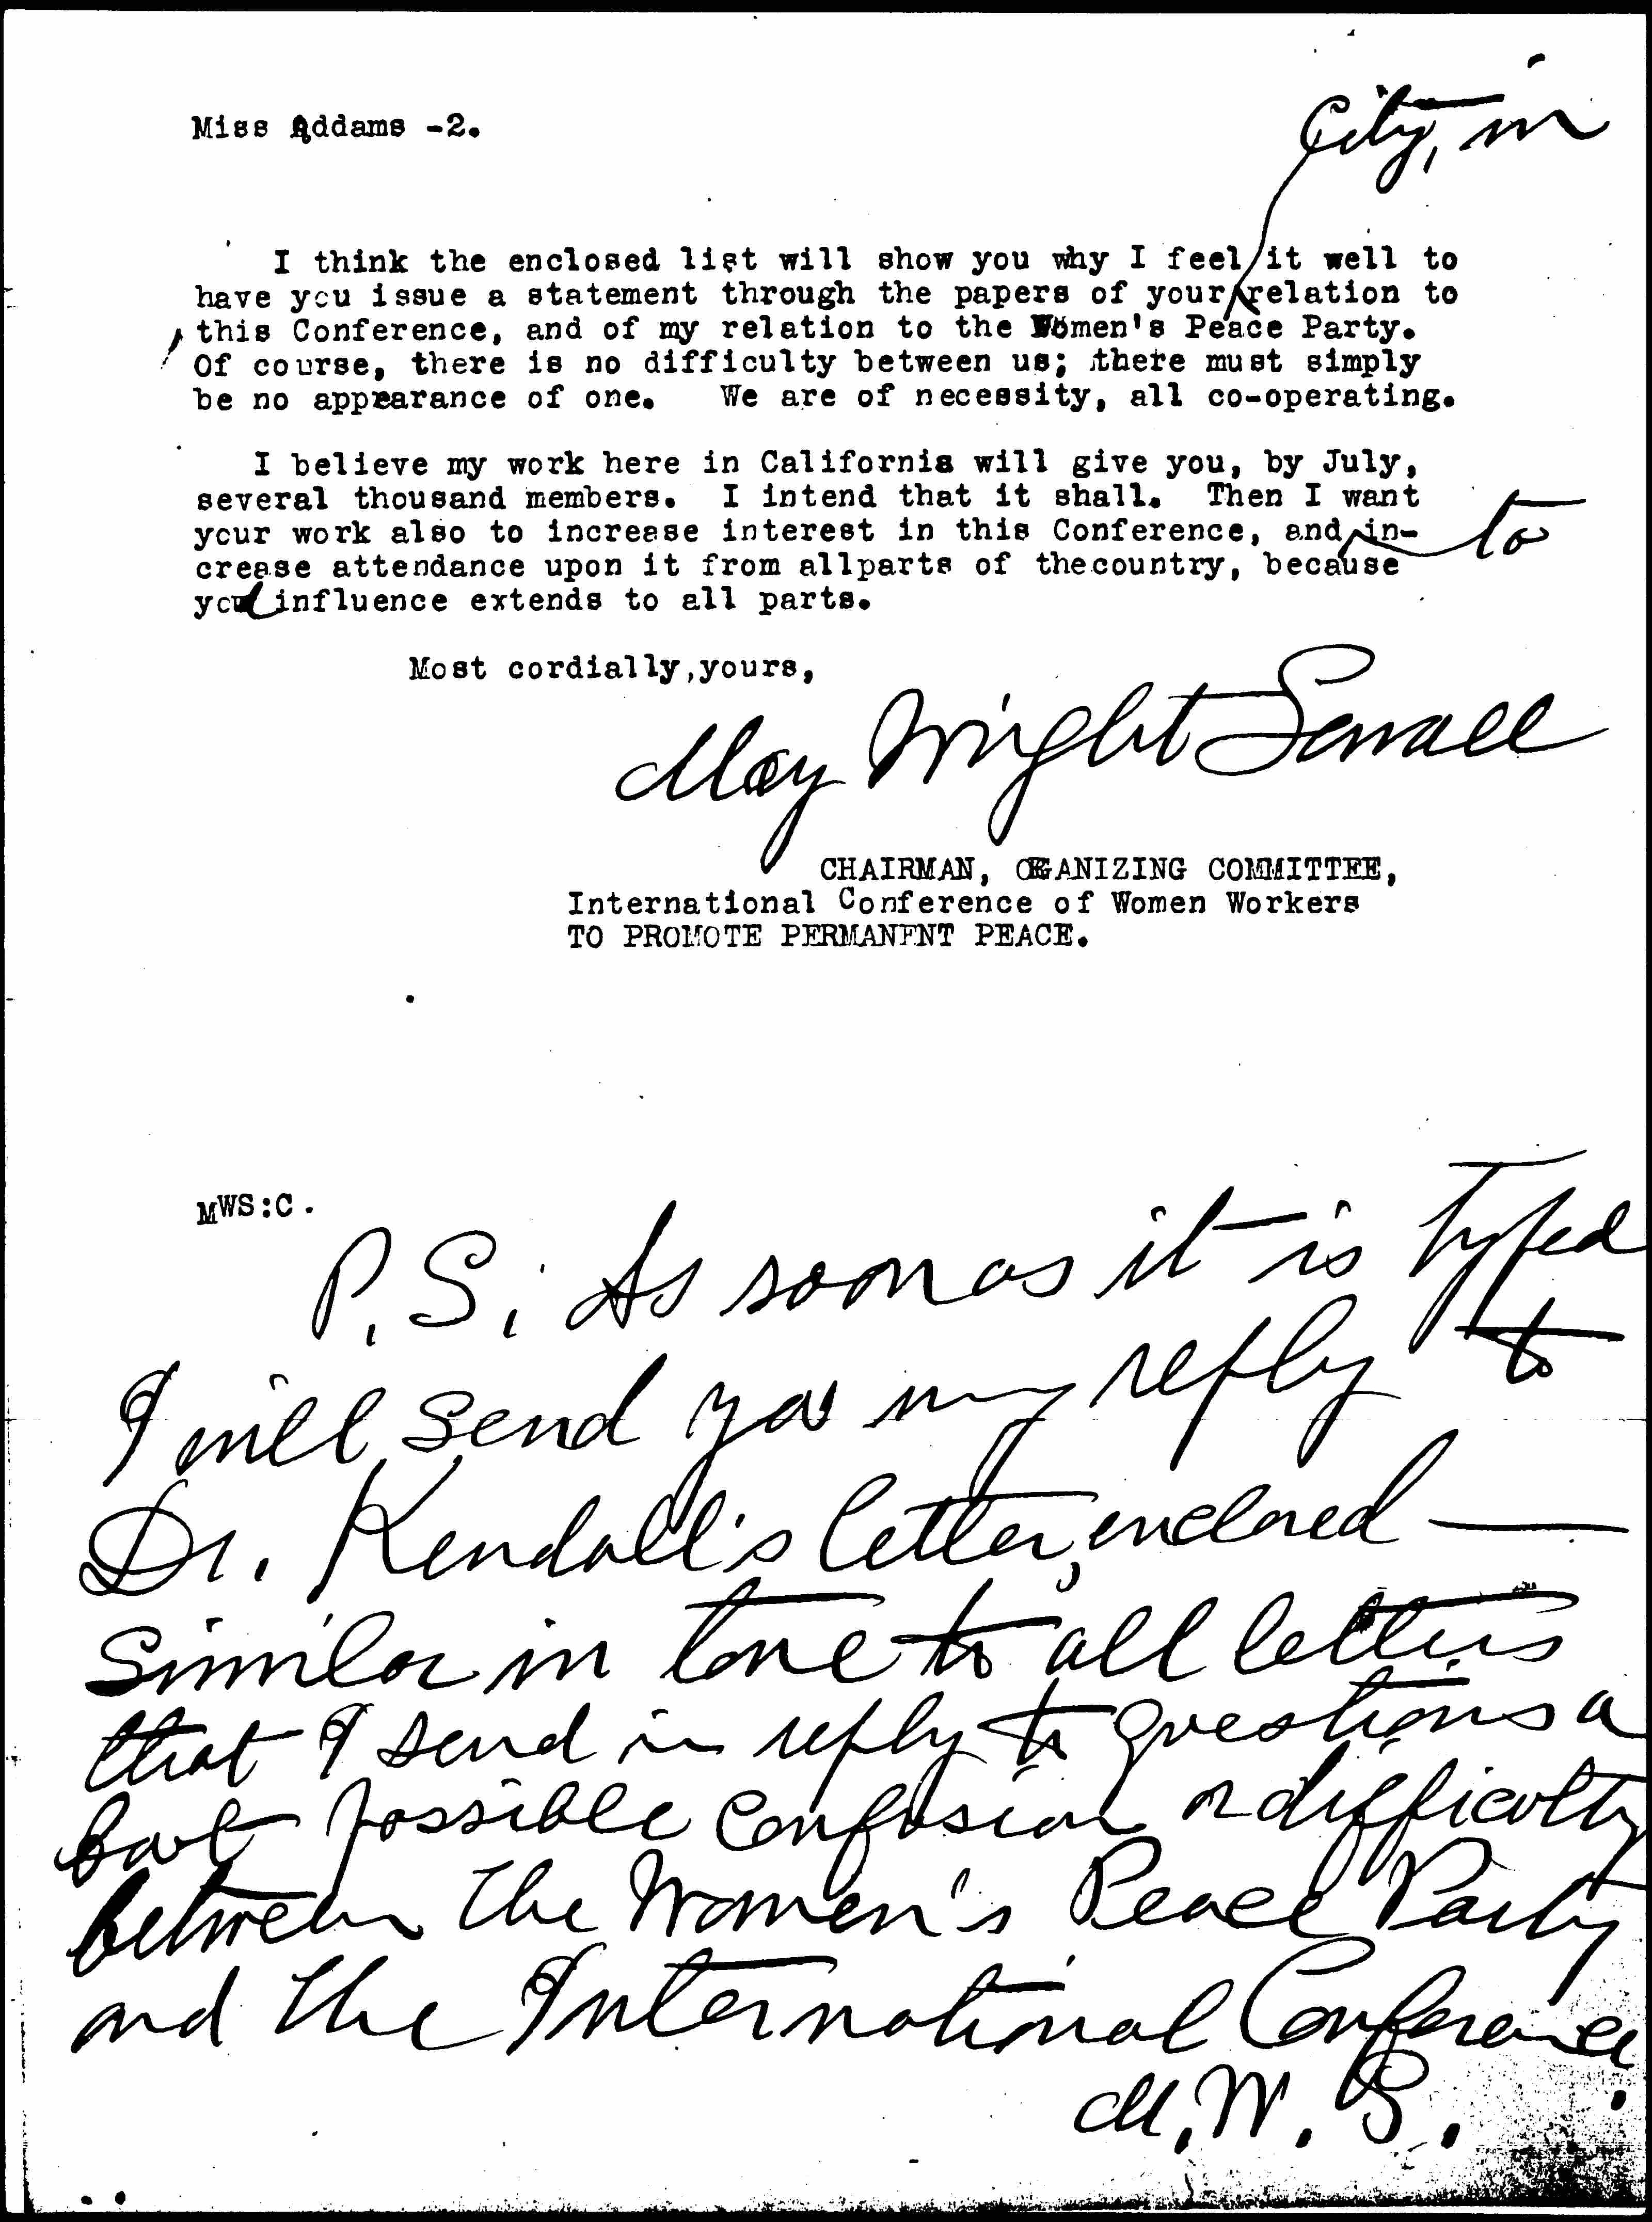 Miss Addams -2.
City, in
I think the enclosed list will show you why I feel it well to
have you issue a statement through the papers of your relation to
this Conference, and of my relation to the Women's Peace Party.
Of course, there is no difficulty between us; there must simply
be no appearance of one. We are of necessity, all co-operating.
I believe my work here in California will give you, by July,
several thousand members. I intend that it shall. Then I want
your work also to increase interest in this Conference, and in-
to
crease attendance upon it from allparts of thecountry, because
your influence extends to all parts.
Most cordially,yours,
May Wright Sewall
CHAIRMAN, ORGANIZING COMMITTEE,
International Conference of Women Workers
TO PROMOTE PERMANENT PEACE.
MWS:C.
P.S. As soon as it is typed
I will send you my reply to
Dr. Kendall's letter, enclosed —
Similar in tone to all letters
that I send in reply to questions a
bout possible confusion or difficulty
between the Women's Peace Party
and the International Conference.
M.W.S.